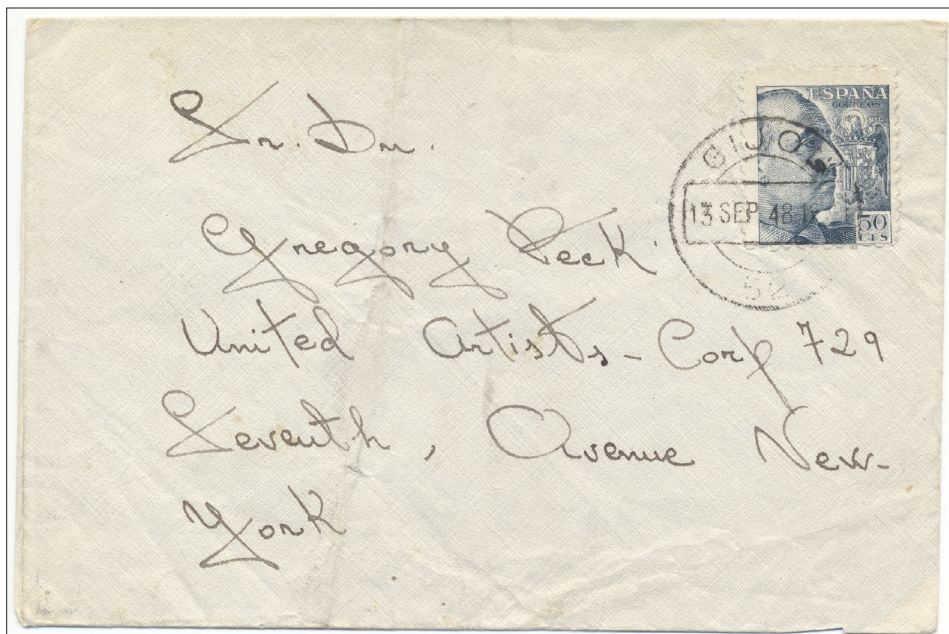 Sr. Dn.
Gregory Peck
United Artists - Corp 729
Seventh, Avenue New-
York
ESPAÑA
CORREOS
50
CTS
GIJO
13 SEP 48
52